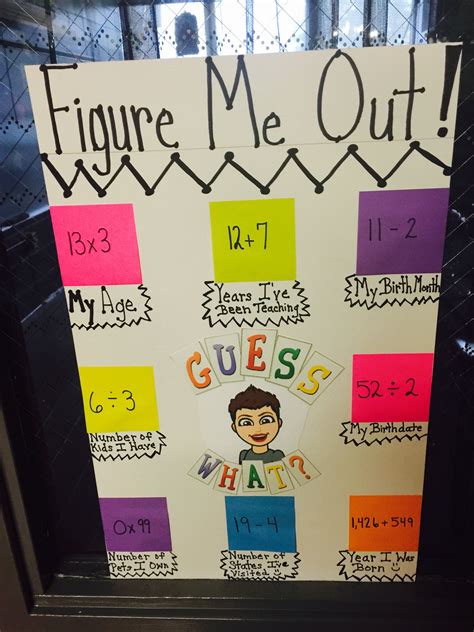 Figure Me Out!
13x3
My Age
12+7
Years I've
Been Teaching
11-2
My Birth Month
6÷3
Number of
Kids I Have
GUESS
WHAT?
52÷2
My Birthdate
0x99
Number of
Pets I Own
19-4
Number of
States I've
Visited
1,426+549
Year I Was
Born